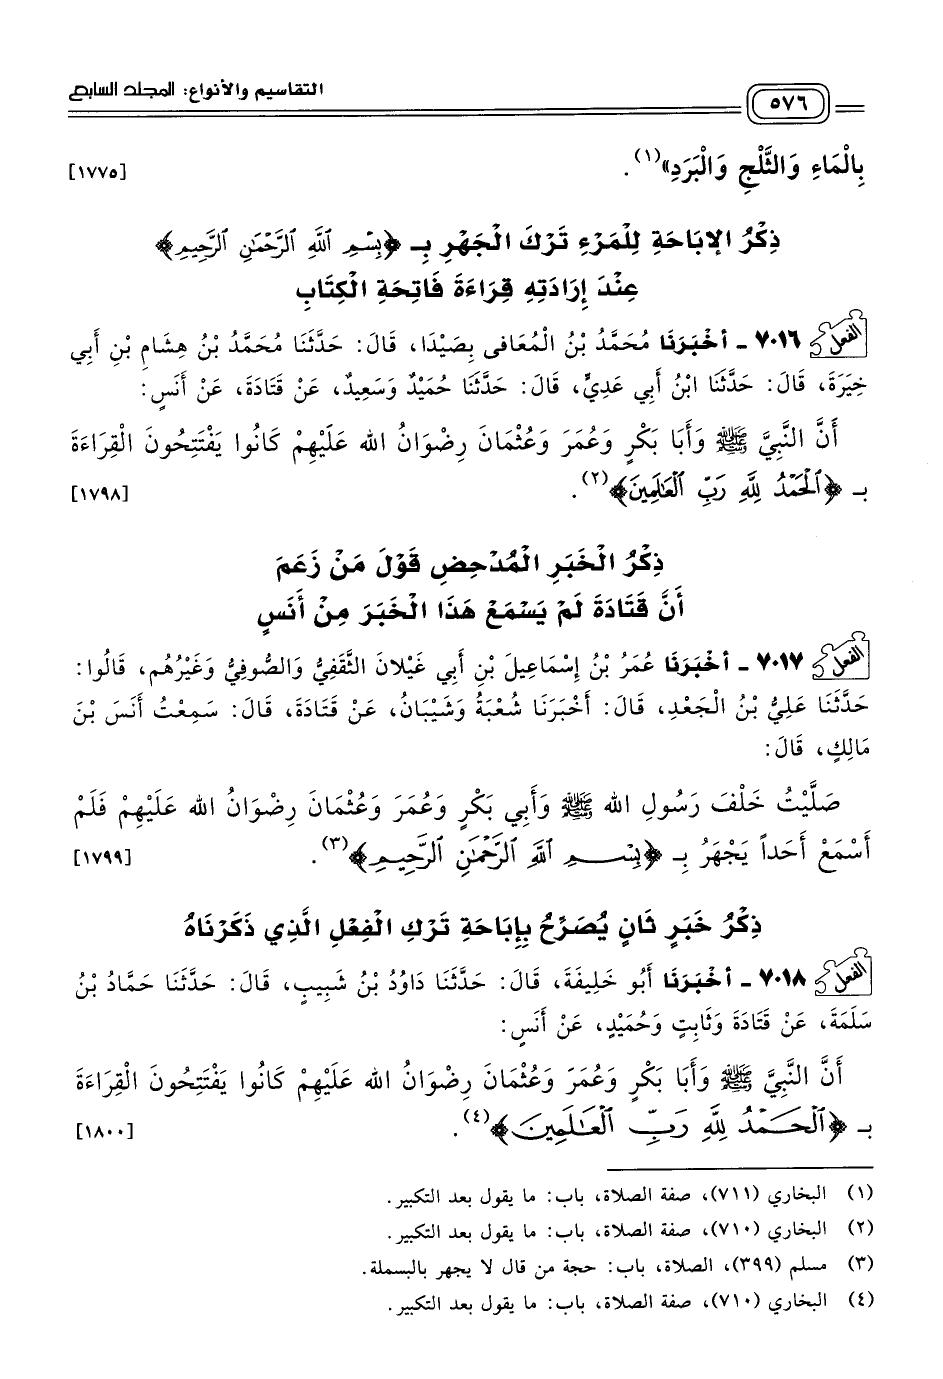 ٥٧٦ التقاسيم والأنواع: المجلد السابع
بِالْمَاءِ وَالثَّلْجِ وَالْبَرَدِ»(١). [١٧٧٥]
ذِكْرُ الإبَاحَةِ لِلْمَرْءِ تَرْكَ الْجَهْرِ بِـ ﴿بِسْمِ ٱللَّهِ ٱلرَّحْمَٰنِ ٱلرَّحِيمِ﴾
عِنْدَ إِرَادَتِهِ قِرَاءَةَ فَاتِحَةِ الْكِتَابِ
الفعل ٧٠١٦ - أخْبَرَنَا مُحَمَّدُ بْنُ الْمُعَافى بِصَيْدَا، قَالَ: حَدَّثَنَا مُحَمَّدُ بْنُ هِشَامِ بْنِ أَبِي
خِيَرَةَ، قَالَ: حَدَّثَنَا ابْنُ أَبِي عَدِيٍّ، قَالَ: حَدَّثَنَا حُمَيْدٌ وَسَعِيدٌ، عَنْ قَتَادَةَ، عَنْ أَنَسٍ:
أَنَّ النَّبِيَّ ﷺ وَأَبَا بَكْرٍ وَعُمَرَ وَعُثْمَانَ رِضْوَانُ الله عَلَيْهِمْ كَانُوا يَفْتَتِحُونَ الْقِرَاءَةَ
بـ ﴿ٱلْحَمْدُ لِلَّهِ رَبِّ ٱلْعَٰلَمِينَ﴾(٢). [١٧٩٨]
ذِكْرُ الْخَبَرِ الْمُدْحِضِ قَوْلَ مَنْ زَعَمَ
أَنَّ قَتَادَةَ لَمْ يَسْمَعْ هَذَا الْخَبَرَ مِنْ أَنَسٍ
الفعل ٧٠١٧ - أخْبَرَنَا عُمَرُ بْنُ إِسْمَاعِيلَ بْنِ أَبِي غَيْلانَ الثَّقَفِيُّ وَالصُّوفِيُّ وَغَيْرُهُم، قَالُوا:
حَدَّثَنَا عَلِيُّ بْنُ الْجَعْدِ، قَالَ: أَخْبَرَنَا شُعْبَةُ وَشَيْبَانُ، عَنْ قَتَادَةَ، قَالَ: سَمِعْتُ أَنَسَ بْنَ
مَالِكٍ، قَالَ:
صَلَّيْتُ خَلْفَ رَسُولِ الله ﷺ وَأَبِي بَكْرٍ وَعُمَرَ وَعُثْمَانَ رِضْوَانُ الله عَلَيْهِمْ فَلَمْ
أَسْمَعْ أَحَداً يَجْهَرُ بِـ ﴿بِسْمِ ٱللَّهِ ٱلرَّحْمَٰنِ ٱلرَّحِيمِ﴾(٣). [١٧٩٩]
ذِكْرُ خَبَرٍ ثَانٍ يُصَرِّحُ بِإِبَاحَةِ تَرْكِ الْفِعْلِ الَّذِي ذَكَرْنَاهُ
الفعل ٧٠١٨ - أخْبَرَنَا أَبُو خَلِيفَةَ، قَالَ: حَدَّثَنَا دَاوُدُ بْنُ شَبِيبٍ، قَالَ: حَدَّثَنَا حَمَّادُ بْنُ
سَلَمَةَ، عَنْ قَتَادَةَ وَثَابِتٍ وَحُمَيْدٍ، عَنْ أَنَسٍ:
أَنَّ النَّبِيَّ ﷺ وَأَبَا بَكْرٍ وَعُمَرَ وَعُثْمَانَ رِضْوَانُ الله عَلَيْهِمْ كَانُوا يَفْتَتِحُونَ الْقِرَاءَةَ
بـ ﴿ٱلْحَمْدُ لِلَّهِ رَبِّ ٱلْعَٰلَمِينَ﴾(٤). [١٨٠٠]
(١) البخاري (٧١١)، صفة الصلاة، باب: ما يقول بعد التكبير.
(٢) البخاري (٧١٠)، صفة الصلاة، باب: ما يقول بعد التكبير.
(٣) مسلم (٣٩٩)، الصلاة، باب: حجة من قال لا يجهر بالبسملة.
(٤) البخاري (٧١٠)، صفة الصلاة، باب: ما يقول بعد التكبير.